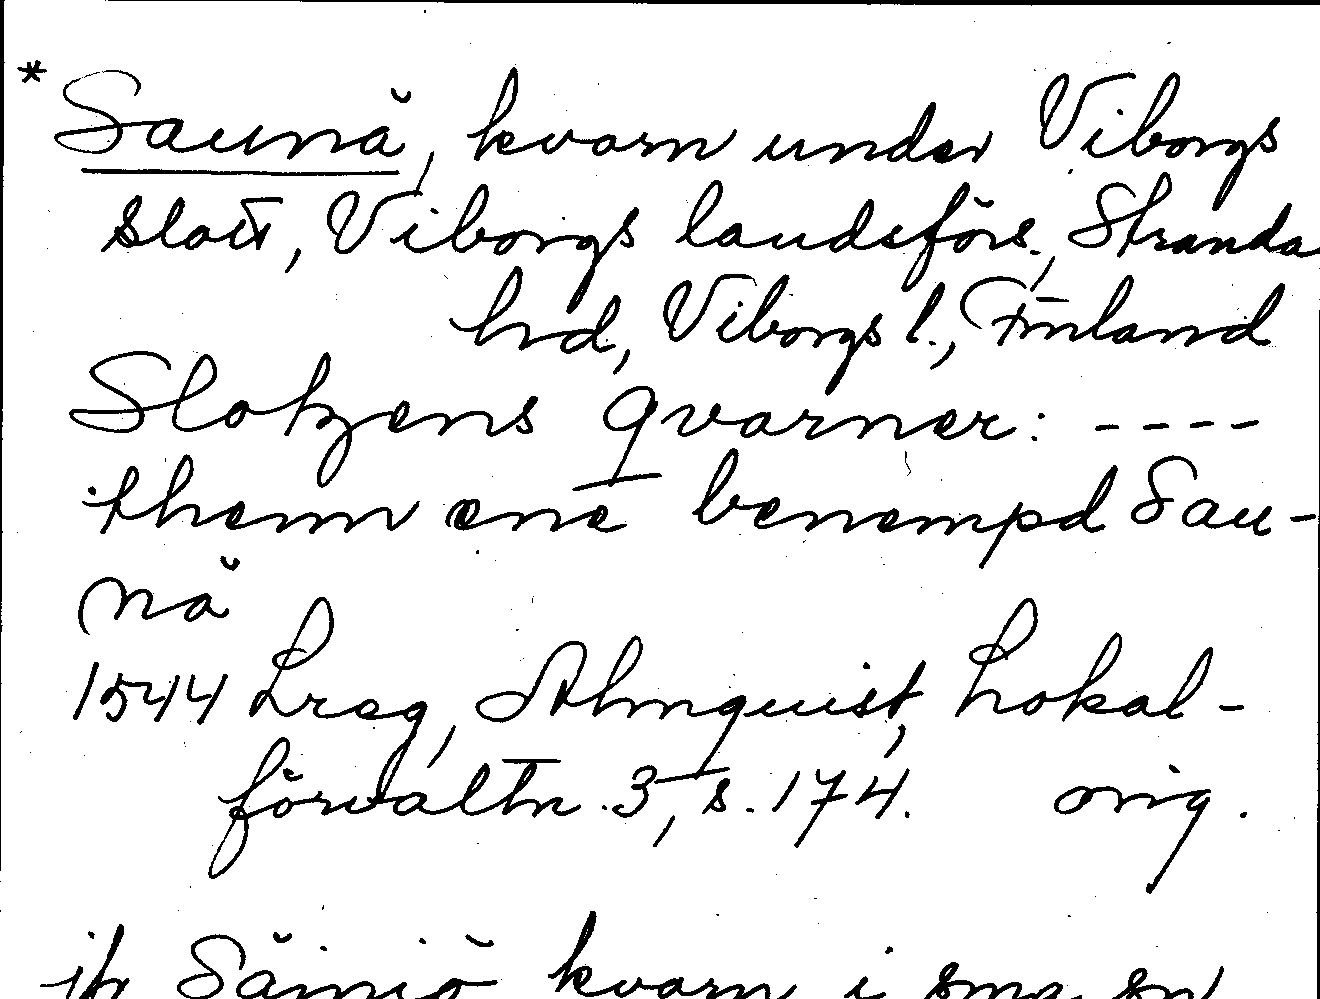 * Saunä, kvarn under Viborgs
slott, Viborgs landsförs., Stranda
hrd, Viborgs l., Finland
Slotzens qvarner: ----
them ene benempd Sau-
nä
1544 Lreg, Almquist, Lokal-
förvaltn. 3, s. 174. orig.
jfr Säiniö kvarn i sma sn